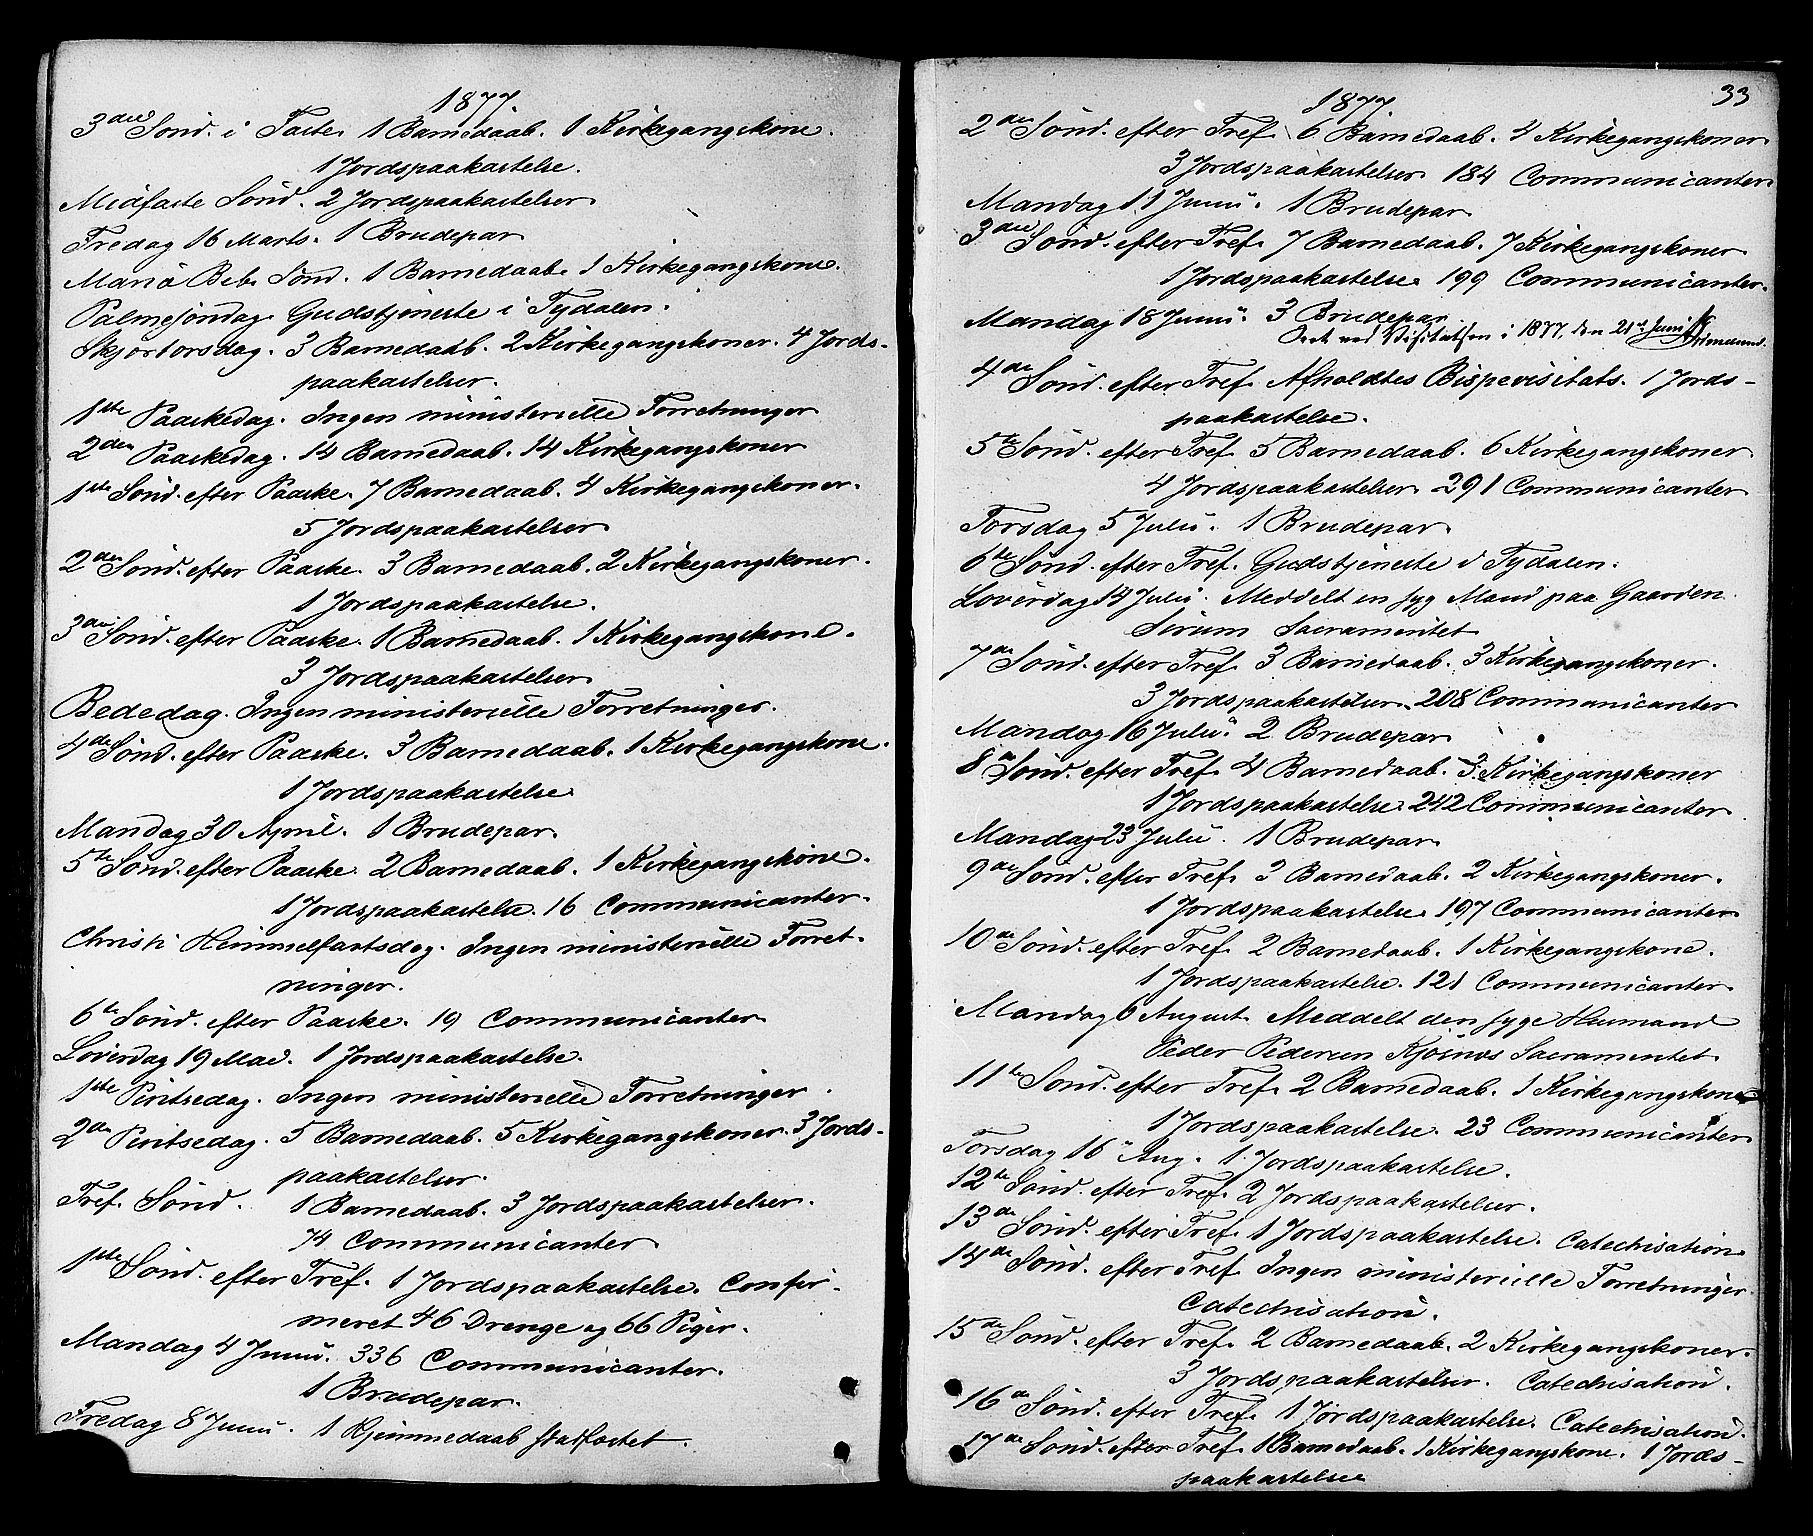 1877.
3die Sönd. i Faste. 1 Barnedaab. 1 Kirkegangskone.
1 Jordspaakastelse.
Midfaste Sönd. 2 Jordspaakastelser.
Fredag 16 Marts. 1 Brudepar.
Mariä Beb. Sönd. 1 Barnedaab. 1 Kirkegangskone.
Palmesöndag. Gudstjeneste i Tydalen.
Skjærtorsdag. 3 Barnedaab. 2 Kirkegangskoner. 4 Jords-
paakastelser.
1ste Paaskedag. Ingen ministerielle Forretninger
2den Paaskedag. 14 Barnedaab. 14 Kirkegangskoner
1ste Sönd. efter Paaske. 7 Barnedaab. 4 Kirkegangskoner.
5 Jordspaakastelser
2den Sönd. efter Paaske. 3 Barnedaab. 2 Kirkegangskoner.
1 Jordspaakastelse.
3die Sönd. efter Paaske. 1 Barnedaab. 1 Kirkegangskone.
3 Jordspaakastelser
Bededag. Ingen ministerielle Forretninger.
4de Sönd. efter Paaske. 3 Barnedaab. 1 Kirkegangskone.
1 Jordspaakastelse
Mandag 30 April. 1 Brudepar.
5te Sönd. efter Paaske. 2 Barnedaab. 1 Kirkegangskone.
1 Jordspaakastelse. 16 Communicanter.
Christi Himmelfartsdag. Ingen ministerielle Forret-
ninger.
6te Sönd. efter Paaske. 19 Communicanter
Löverdag 19 Mai. 1 Jordspaakastelse.
1ste Pintsedag. Ingen ministerielle Forretninger.
2den Pintsedag. 5 Barnedaab. 5 Kirkegangskoner. 3 Jords-
paakastelser.
Tref. Sönd. 1 Barnedaab. 3 Jordspaakastelser.
74 Communicanter
1ste Sönd. efter Tref. 1 Jordspaakastelse. Confir-
meret 46 Drenge og 66 Piger.
Mandag 4 Junii. 336 Communicanter.
1 Brudepar.
Fredag 8 Junii. 1 Hjemmedaab stadfæstet.
33
1877.
2den Sönd. efter Tref. 6 Barnedaab. 4 Kirkegangskoner
3 Jordspaakastelser 184 Communicanter.
Mandag 11 Junii. 1 Brudepar
3die Sönd. efter Tref. 7 Barnedaab. 7 Kirkegangskoner
1 Jordspaakastelse 199 Communicanter.
Mandag 18 Junii. 3 Brudepar
ved Visitatsen i 1877, den 21de Juni
4de Sönd. efter Tref. Afholdtes Bispevisitats. 1 Jords-
paakastelse.
5te Sönd. efter Tref. 5 Barnedaab. 6 Kirkegangskoner
4 Jordspaakastelser 291 Communicanter
Torsdag 5 Julii. 1 Brudepar
6te Sönd. efter Tref. Gudstjeneste i Tydalen.
Löverdag 14 Julii. Meddelt en syg Mand paa Gaarden
Sirum Sacramentet
7de Sönd. efter Tref. 3 Barnedaab. 3 Kirkegangskoner.
3 Jordspaakastelser. 208 Communicanter
Mandag 16 Julii. 2 Brudepar
8de Sönd. efter Tref. 4 Barnedaab. 3 Kirkegangskoner
1 Jordspaakastelse 242 Communicanter
Mandag 23 Julii. 1 Brudepar
9de Sönd. efter Tref. 3 Barnedaab. 2 Kirkegangskoner.
1 Jordspaakastelse 197 Communicanter
10de Sönd. efter Tref. 2 Barnedaab. 1 Kirkegangskone.
1 Jordspaakastelse. 121 Communicanter
Mandag 6 August. Meddelt den syge Huusmand
Peder Pedersen Kjösnæs Sacramentet
11te Sönd. efter Tref. 2 Barnedaab. 1 Kirkegangskone
1 Jordspaakastelse. 23 Communicanter
Torsdag 16 Aug. 1 Jordspaakastelse.
12te Sönd. efter Tref. 2 Jordspaakastelser.
13de Sönd. efter Tref. 1 Jordspaakastelse. Catechisation
14de Sönd. efter Tref. Ingen ministerielle Forretninger.
Catechisation.
15de Sönd. efter Tref. 2 Barnedaab. 2 Kirkegangskoner.
3 Jordspaakastelser. Catechisation.
16de Sönd. efter Tref. 1 Jordspaakastelse. Catechisation.
17de Sönd. efter Tref. 1 Barnedaab. 1 Kirkegangskone. 1 Jords-
paakastelse